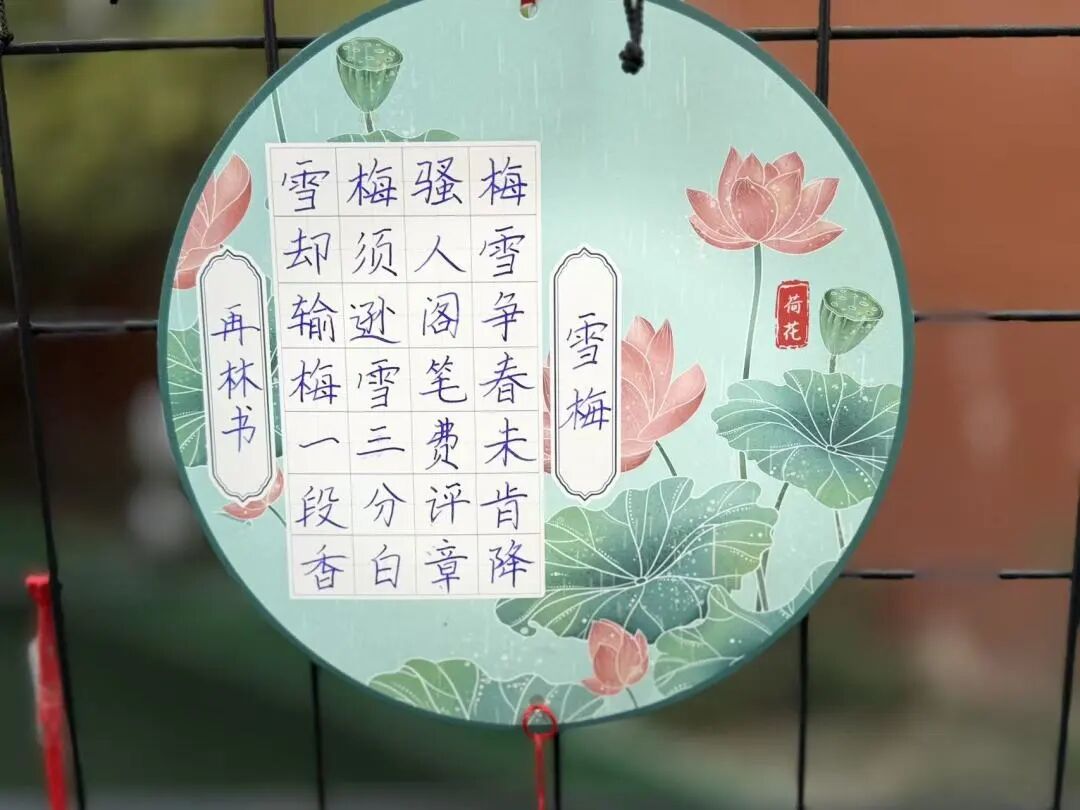 荷花
雪梅
梅雪争春未肯降
骚人阁笔费评章
梅须逊雪三分白
雪却输梅一段香
再林书